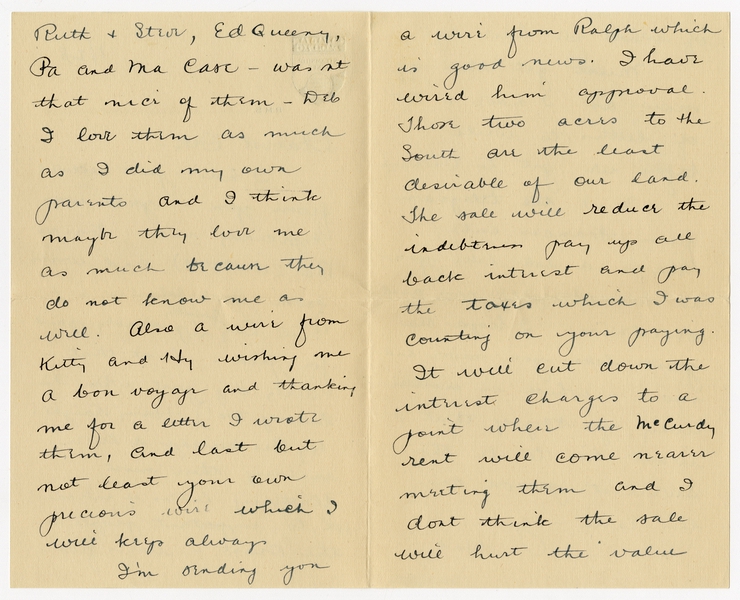 Ruth + Steve, Ed Queeny,
Pa and Ma Case - was nt
that nice of them - Deb
I love them as much
as I did my own
parents and I think
maybe they love me
as much because they
do not know me as
well. Also a wire from
Kitty and Hy wishing me
a bon voyage and thanking
me for a letter I wrote
them, and last but
not least your own
precious wire which I
will keep always
I'm sending you
a wire from Ralph which
is good news. I have
wired him approval.
Those two acres to the
South are the least
desirable of our land.
The sale will reduce the
indebtness pay up all
back interest and pay
the taxes which I was
counting on your paying.
It will cut down the
interest charges to a
point where the McCurdy
rent will come nearer
meeting them and I
dont think the sale
will hurt the value